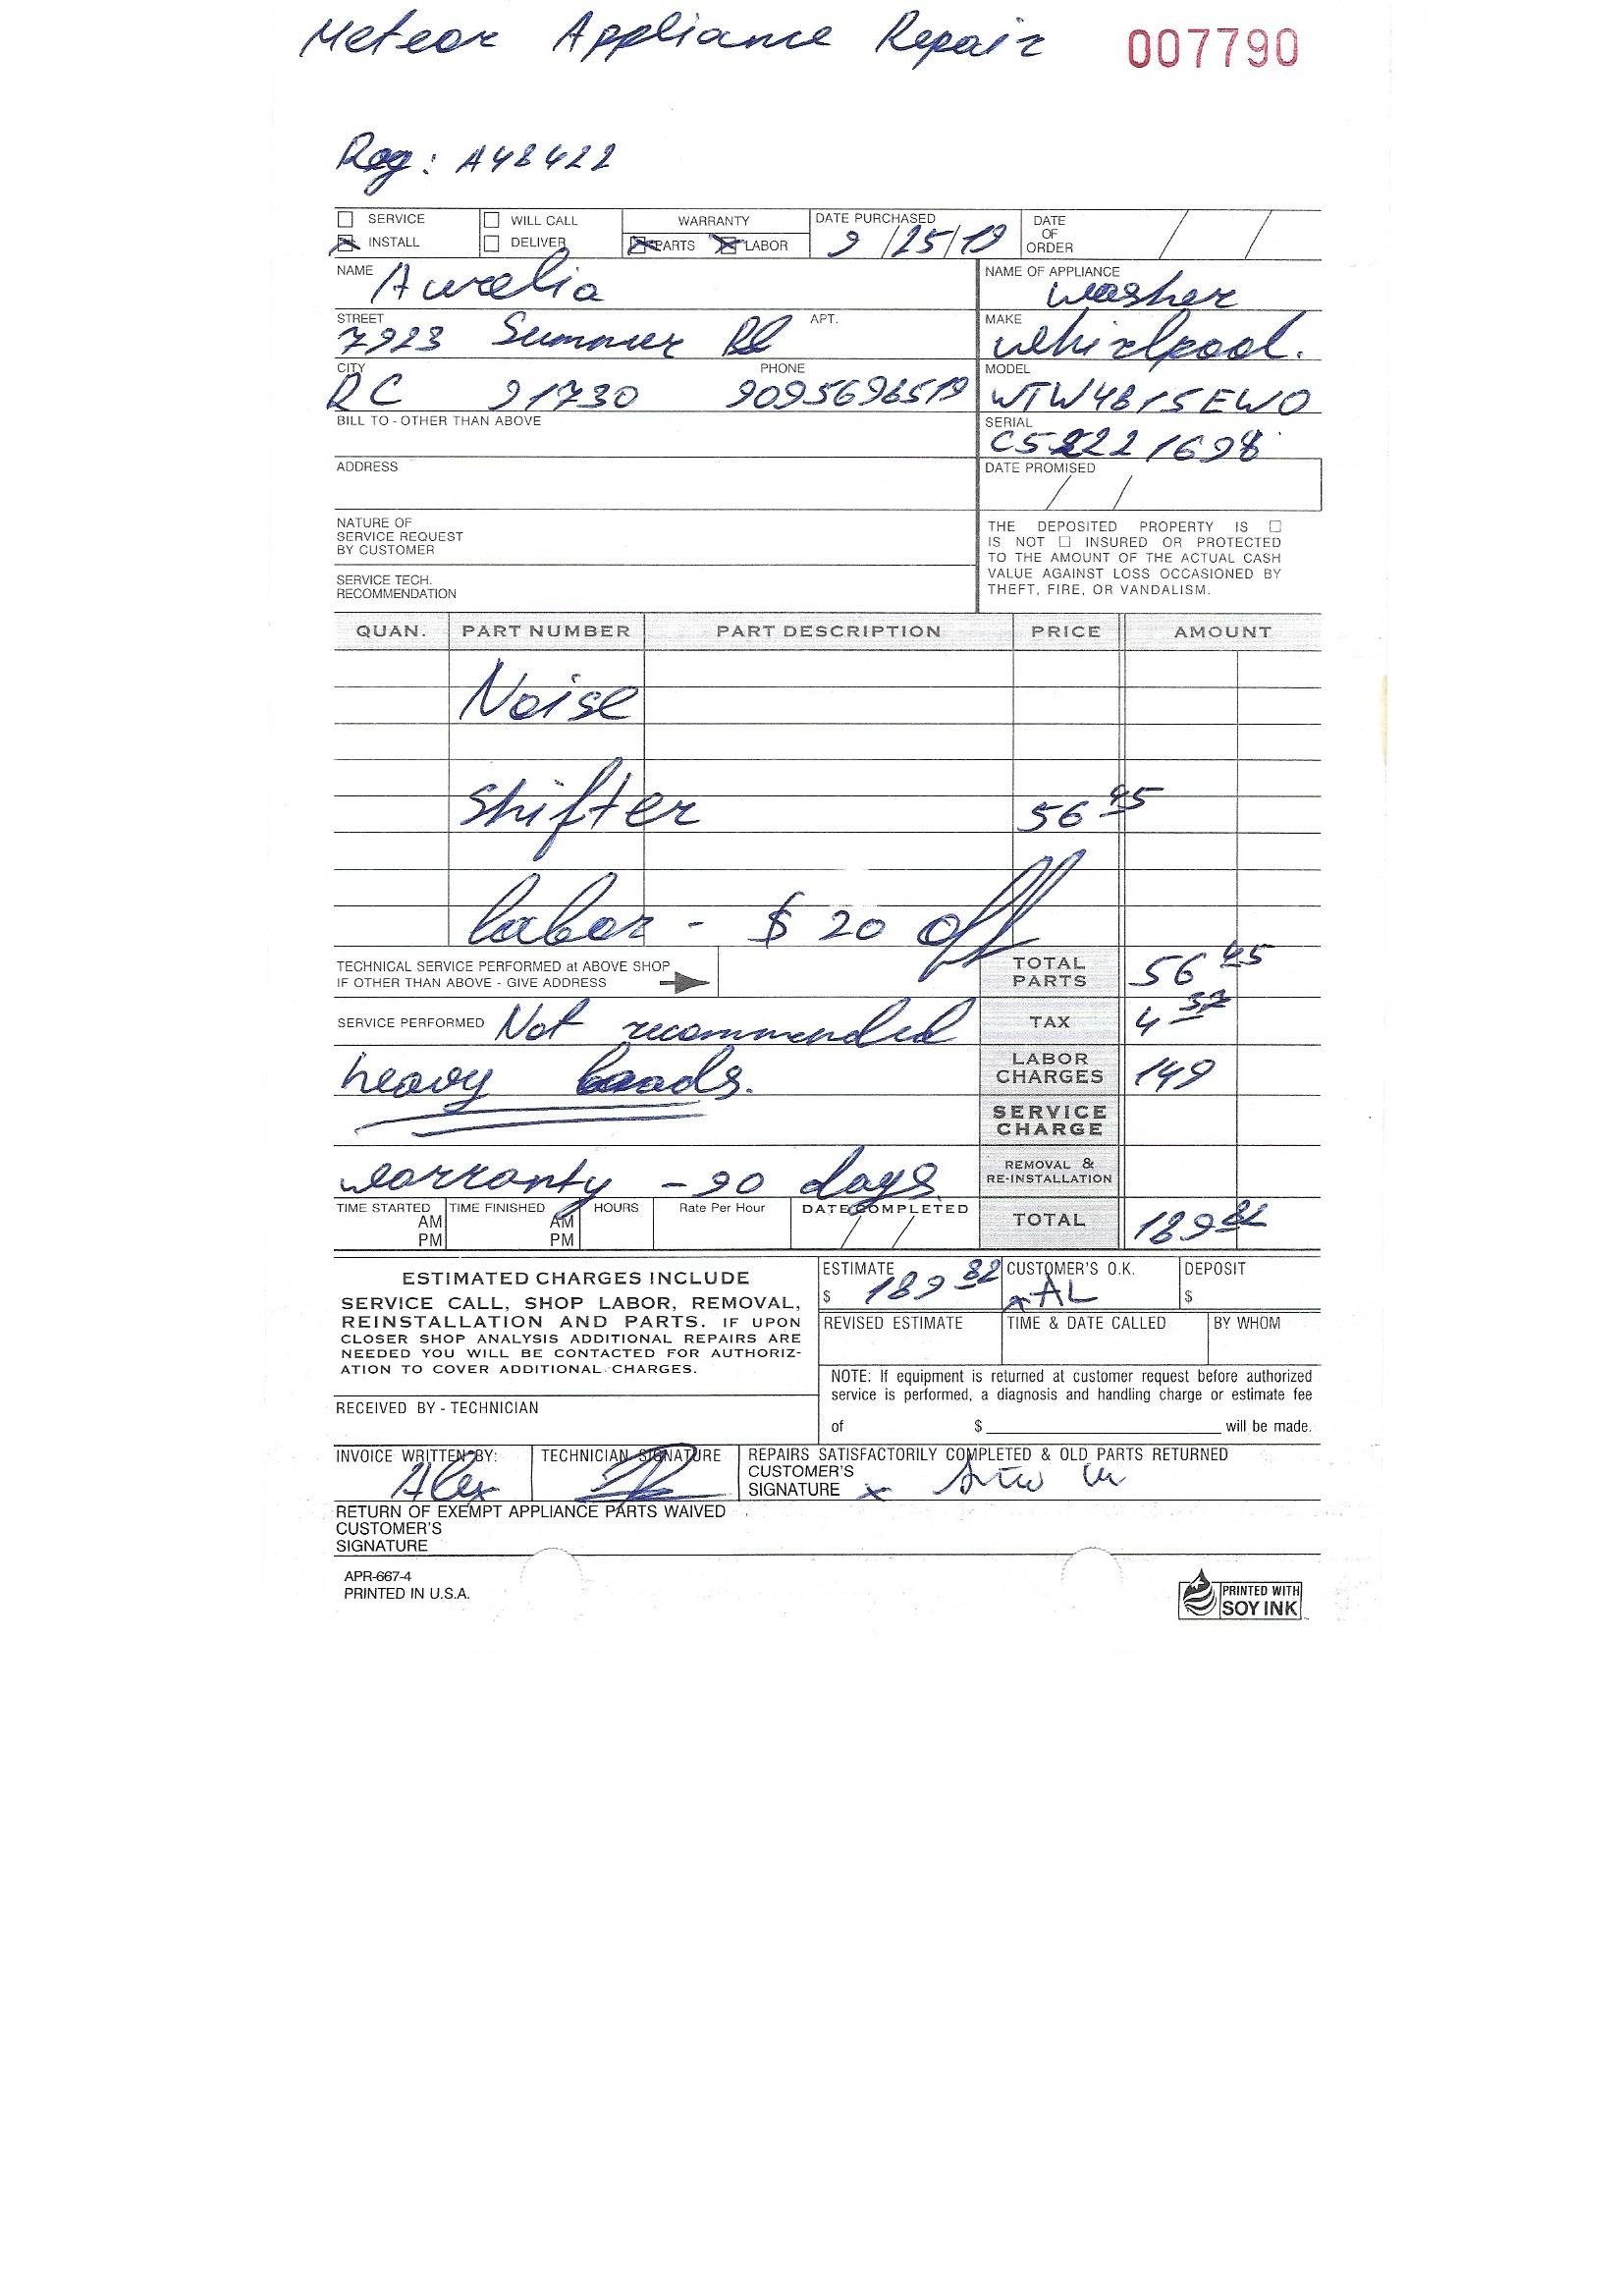 Meteor Appliance Repair 007790
Reg: A48422
SERVICE WILL CALL WARRANTY DATE PURCHASED DATE OF ORDER
INSTALL DELIVER PARTS LABOR 9/25/19
NAME Aurelia NAME OF APPLIANCE washer
STREET 7923 Summer Pl APT. MAKE whirlpool.
CITY RC 91730 PHONE 9095696519 MODEL WTW4815EW0
BILL TO - OTHER THAN ABOVE SERIAL
ADDRESS DATE PROMISED / /
NATURE OF
SERVICE REQUEST
BY CUSTOMER
SERVICE TECH.
RECOMMENDATION
THE DEPOSITED PROPERTY IS ☐
IS NOT ☐ INSURED OR PROTECTED
TO THE AMOUNT OF THE ACTUAL CASH
VALUE AGAINST LOSS OCCASIONED BY
THEFT, FIRE, OR VANDALISM.
QUAN. PART NUMBER PART DESCRIPTION PRICE AMOUNT
Noise
Shifter 56 45
labor - $20 off
TECHNICAL SERVICE PERFORMED at ABOVE SHOP
IF OTHER THAN ABOVE - GIVE ADDRESS
TOTAL PARTS 56 45
SERVICE PERFORMED Not recommended TAX 4 37
heavy loads. LABOR CHARGES 149
SERVICE CHARGE
warranty - 90 days REMOVAL & RE-INSTALLATION
TIME STARTED AM PM TIME FINISHED AM PM HOURS Rate Per Hour DATE COMPLETED / / TOTAL 189 82
ESTIMATED CHARGES INCLUDE
SERVICE CALL, SHOP LABOR, REMOVAL,
REINSTALLATION AND PARTS. IF UPON
CLOSER SHOP ANALYSIS ADDITIONAL REPAIRS ARE
NEEDED YOU WILL BE CONTACTED FOR AUTHORIZ-
ATION TO COVER ADDITIONAL CHARGES.
ESTIMATE $ 189 82 CUSTOMER'S O.K. x AL DEPOSIT $
REVISED ESTIMATE TIME & DATE CALLED BY WHOM
NOTE: If equipment is returned at customer request before authorized
service is performed, a diagnosis and handling charge or estimate fee
of $ will be made.
RECEIVED BY - TECHNICIAN
INVOICE WRITTEN BY: Alex TECHNICIAN SIGNATURE REPAIRS SATISFACTORILY COMPLETED & OLD PARTS RETURNED
CUSTOMER'S
SIGNATURE x
RETURN OF EXEMPT APPLIANCE PARTS WAIVED
CUSTOMER'S
SIGNATURE
APR-667-4
PRINTED IN U.S.A.
PRINTED WITH
SOY INK